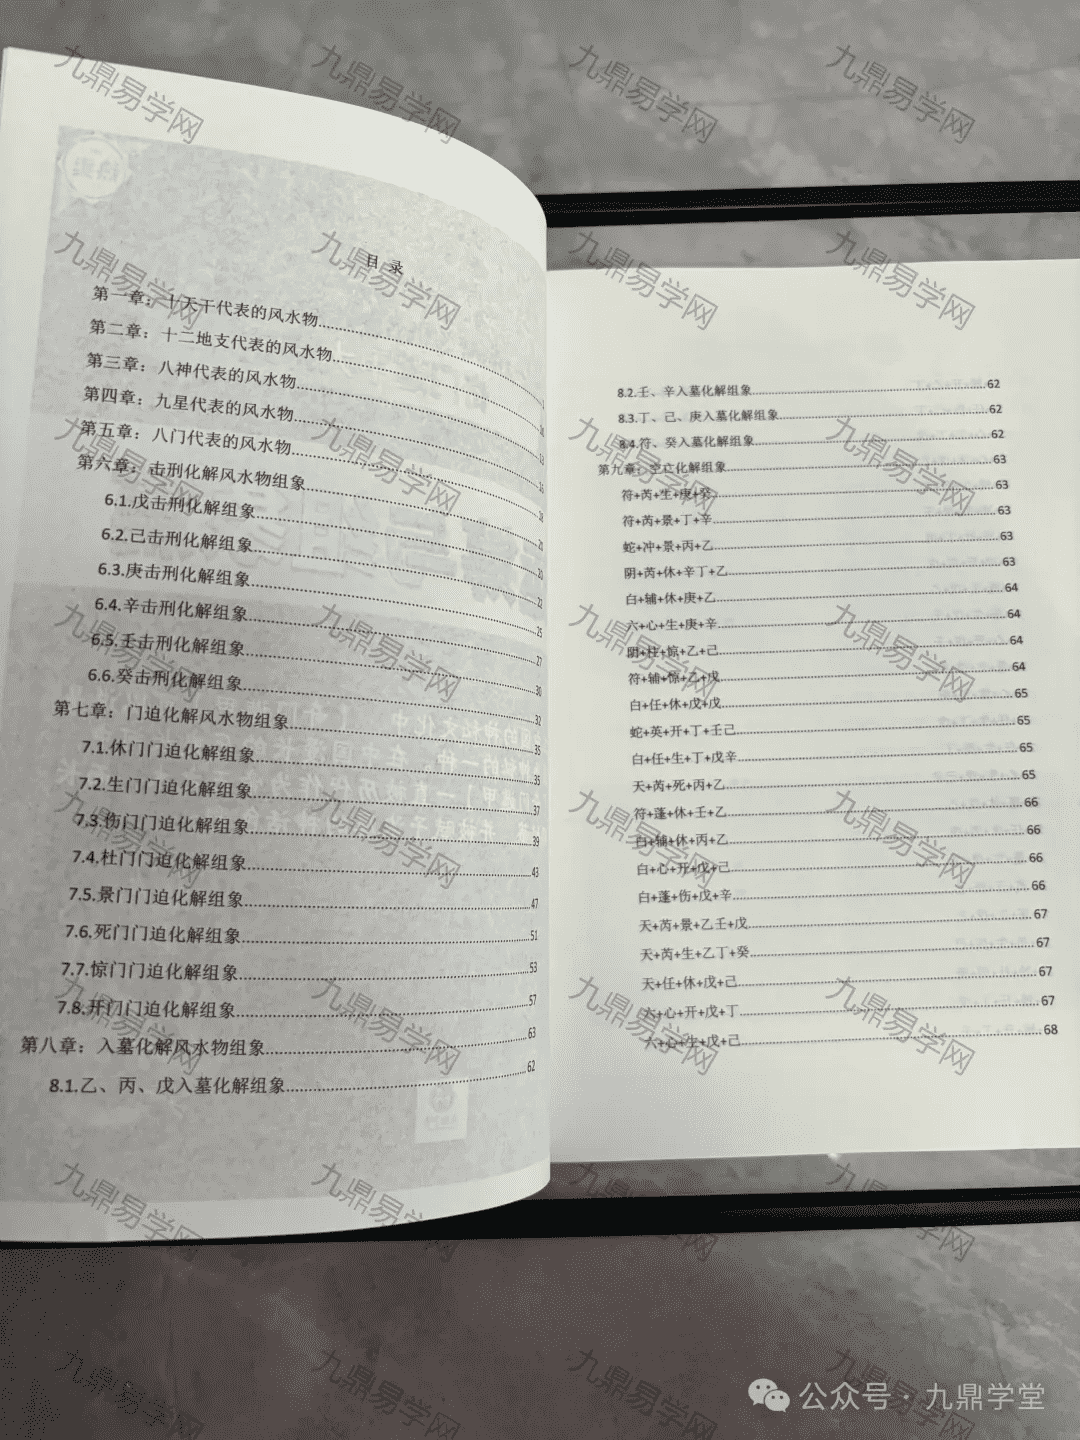 目 录
第一章：十天干代表的风水物
第二章：十二地支代表的风水物
第三章：八神代表的风水物
第四章：九星代表的风水物
第五章：八门代表的风水物
第六章：击刑化解风水物组象
6.1.戊击刑化解组象 20
6.2.己击刑化解组象 20
6.3.庚击刑化解组象 22
6.4.辛击刑化解组象 25
6.5.壬击刑化解组象 27
6.6.癸击刑化解组象 30
第七章：门迫化解风水物组象 32
7.1.休门门迫化解组象 35
7.2.生门门迫化解组象 35
7.3.伤门门迫化解组象 37
7.4.杜门门迫化解组象 39
7.5.景门门迫化解组象 43
7.6.死门门迫化解组象 47
7.7.惊门门迫化解组象 51
7.8.开门门迫化解组象 53
第八章：入墓化解风水物组象 57
8.1.乙、丙、戊入墓化解组象 63
62
8.2.壬、辛入墓化解组象 62
8.3.丁、己、庚入墓化解组象 62
8.4.符、癸入墓化解组象 62
第九章：空亡化解组象 63
符+芮+生+庚+癸 63
符+芮+景+丁+辛 63
蛇+冲+景+丙+乙 63
阴+芮+休+辛丁+乙 63
白+辅+休+庚+乙 64
六+心+生+庚+辛 64
阴+柱+惊+乙+己 64
符+辅+惊+乙+戊 64
白+任+休+戊+戊 65
蛇+英+开+丁+壬己 65
白+任+生+丁+戊辛 65
天+芮+死+丙+乙 65
符+蓬+休+壬+乙 66
白+辅+休+丙+乙 66
白+心+开+戊+己 66
白+蓬+伤+戊+辛 66
天+芮+景+乙壬+戊 67
天+芮+生+乙丁+癸 67
天+任+休+戊+己 67
六+心+开+戊+丁 67
六+心+生+戊+己 68
九鼎易学网
公众号·九鼎学堂